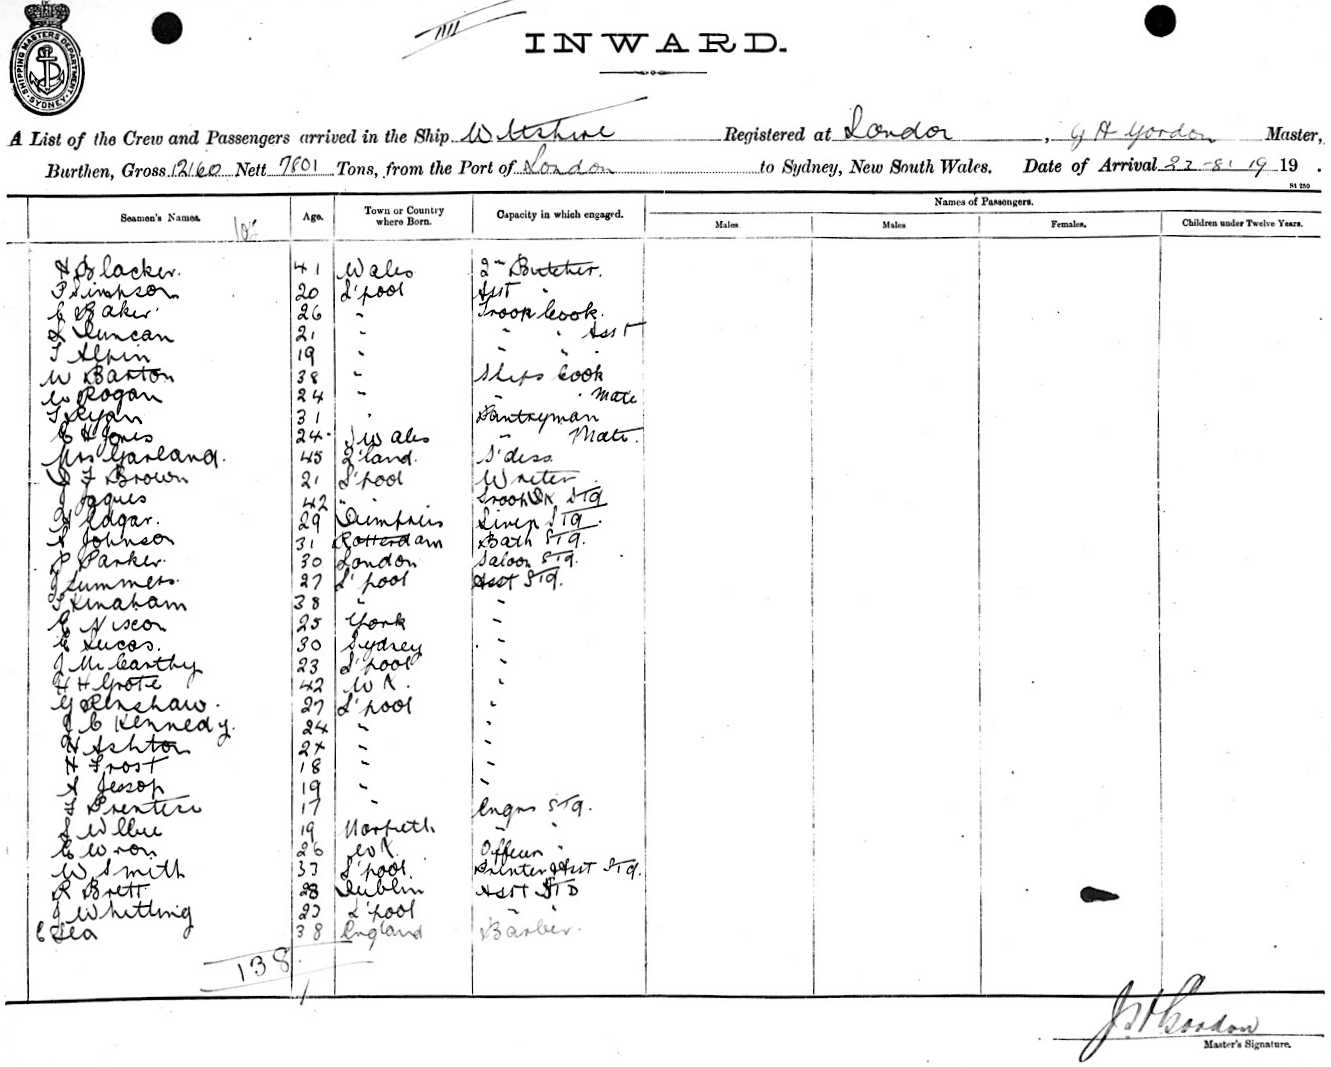 SHIPPING MASTERS DEPARTMENT. SYDNEY
INWARD.
A List of the Crew and Passengers arrived in the Ship Wiltshire Registered at London, G H Gordon Master,
Burthen, Gross 12160 Nett 7801 Tons, from the Port of London to Sydney, New South Wales. Date of Arrival 22-8-19 19 .
S1 250
Seamen's Names. Age. Town or Country where Born. Capacity in which engaged. Names of Passengers.
Males Males Females. Children under Twelve Years.
H Blacker. 41 Wales 2nd Butcher.
P Simpson 20 L'pool Asst "
C Baker 26 " Troop Cook.
L Duncan 21 " " " Asst
T Alpin 19 " " " "
W Barton 38 " Ships Cook
W Rogan 24 " " " Mate
T Ryan 31 " Pantryman
C H Jones 24 Wales " Mate.
Mrs Garland. 45 S'dess
F Brown 21 L'pool Writer
J Jaques 42 " Troop Std
H Edgar. 29 Dumfries Linen Std.
A Johnson 31 Rotterdam Bath Std.
P Parker. 30 London Saloon Std.
J Summers. 27 L'pool Asst Std.
T Kinaham 38 " "
E Nixon 25 York "
C Lucas. 30 Sydney "
J McCarthy 23 L'pool "
H H Grote 42 "
G Renshaw. 27 L'pool "
J C Kennedy. 24 " "
H Ashton 24 " "
H Frost 18 " "
A Jessop 19 " "
T Prentice 17 " Engrs Std.
19 Morpeth " "
C Wron 26 Officers "
W Smith 33 L'pool. Printer & Asst Std.
R Brett 28 Dublin Asst STD
J Whitling 23 L'pool " "
C Lea 38 England Barber.
138
J H Gordon
Master's Signature.